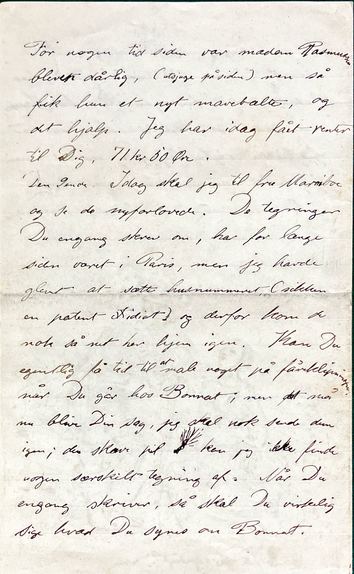 For nogen tid siden var madam Rasmussen
bleven dårlig, (på siden) men så
fik hun et nyt mavebælte, og
det hjalp. Jeg har idag fået renter
til Dig, 71 kr 50 Øre.
Den 2enden. Idag skal jeg til fru
og se de nyforlovede. De tegninger
Du engang skrev om, har for længe
siden været i Paris, men jeg havde
glemt at sætte husnummeret (sikken
en patent Idiot) og derfor kom de
nok så net her hjem igen. Kan Du
egentlig få tid til at male noget på
når Du går hos Bonnat; men det må
nu blive Din sag, jeg skal nok sende dem
igen; den skæve pil kan jeg ikke finde
nogen særskilt tegning af. Når Du
engang skriver, så skal Du virkelig
sige hvad Du synes om Bonnat.